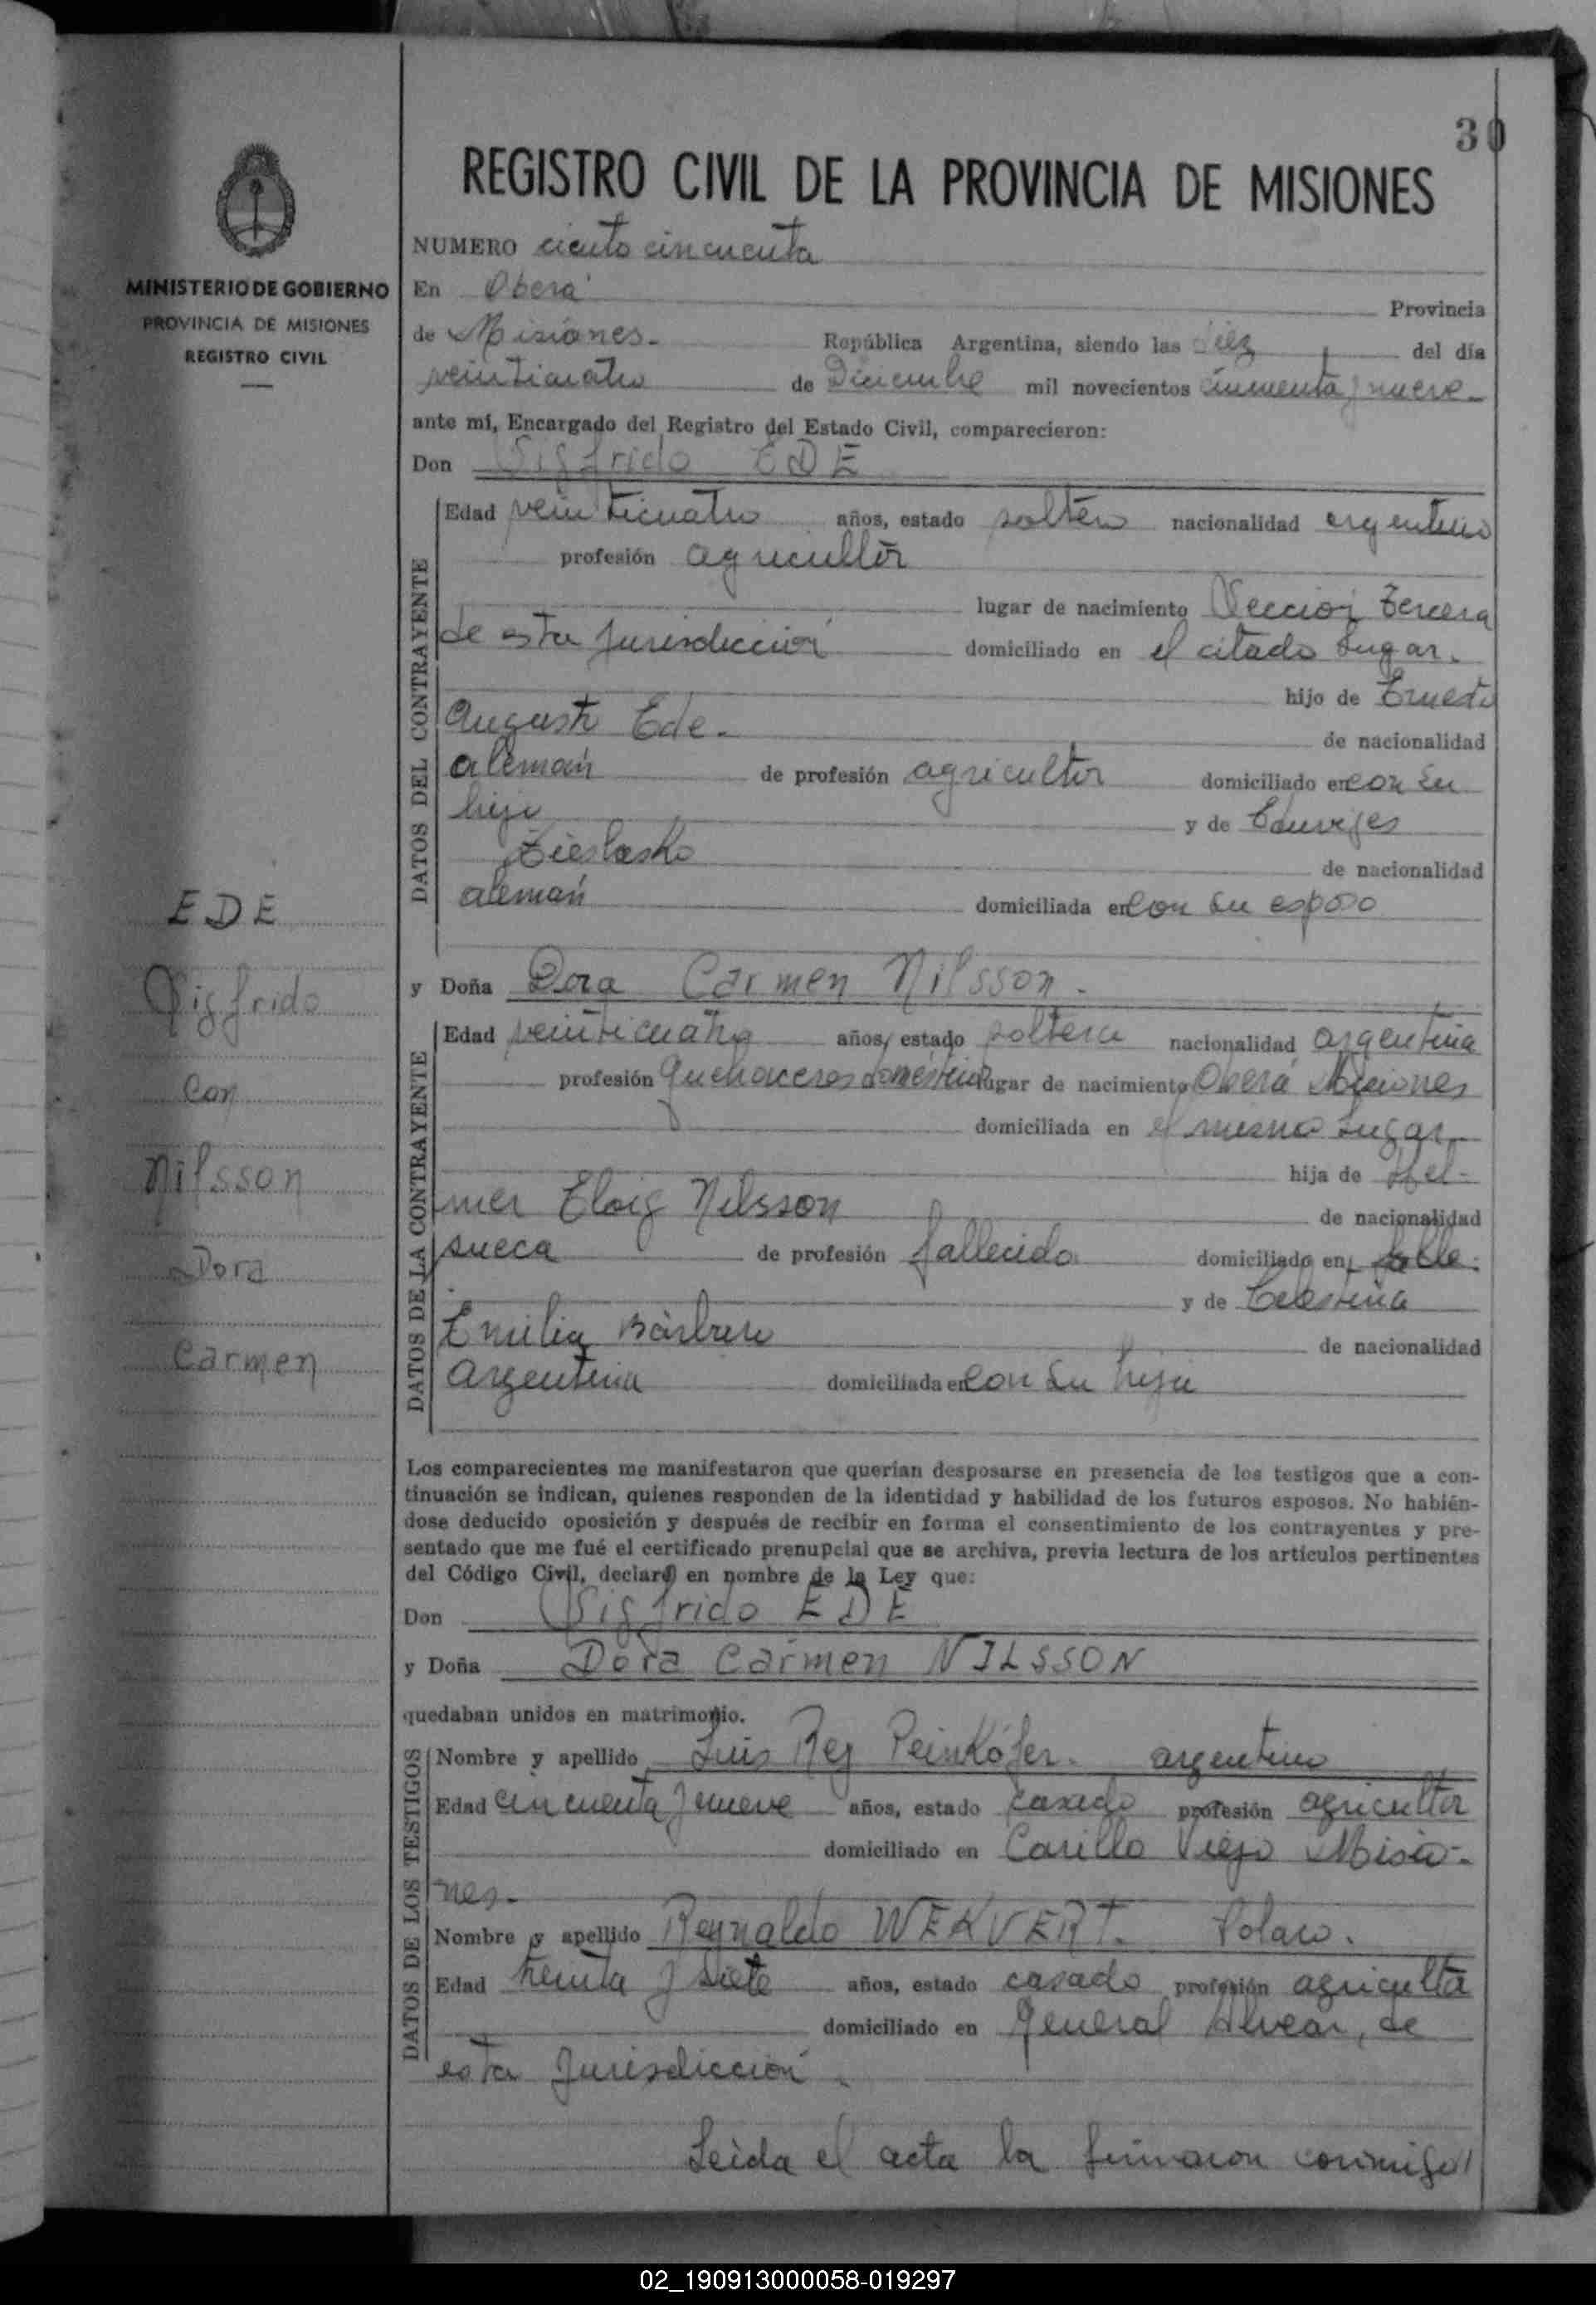 30
REGISTRO CIVIL DE LA PROVINCIA DE MISIONES
MINISTERIO DE GOBIERNO
PROVINCIA DE MISIONES
REGISTRO CIVIL
NUMERO ciento cincuenta
En Oberá Provincia
de Misiones.- República Argentina, siendo las diez del día
veinticuatro de Diciembre mil novecientos cincuenta y nueve.-
ante mí, Encargado del Registro del Estado Civil, comparecieron:
Don Sigfrido EDE
DATOS DEL CONTRAYENTE
Edad veinticuatro años, estado soltero nacionalidad argentino
profesión agricultor
lugar de nacimiento Sección tercera
de esta Jurisdicción domiciliado en el citado lugar.
hijo de Ernesto
August Ede.- de nacionalidad
alemán de profesión agricultor domiciliado en con su
hijo y de Eduviges
de nacionalidad
alemán domiciliada en con su esposo
EDE
Sigfrido
con
Nilsson
Dora
Carmen
y Doña Dora Carmen Nilsson.-
DATOS DE LA CONTRAYENTE
Edad veinticuatro años, estado soltera nacionalidad argentina
profesión quehaceres domésticos lugar de nacimiento Oberá Misiones
domiciliada en el mismo lugar.
hija de Hel-
mer Nilsson de nacionalidad
sueca de profesión fallecido domiciliado en
y de Celestina
Emilia de nacionalidad
argentina domiciliada en con su hija
Los comparecientes me manifestaron que querían desposarse en presencia de los testigos que a con-
tinuación se indican, quienes responden de la identidad y habilidad de los futuros esposos. No habién-
dose deducido oposición y después de recibir en forma el consentimiento de los contrayentes y pre-
sentado que me fué el certificado prenupcial que se archiva, previa lectura de los artículos pertinentes
del Código Civil, declaré en nombre de la Ley que:
Don Sigfrido EDE
y Doña Dora Carmen NILSSON
quedaban unidos en matrimonio.
DATOS DE LOS TESTIGOS
Nombre y apellido Luis Rey Peinkofer.- argentino
Edad cincuenta y nueve años, estado casado profesión agricultor
domiciliado en Viejo Misio-
nes.-
Nombre y apellido Reynaldo WEKVERT. Polaco.
Edad treinta y siete años, estado casado profesión agricultor
domiciliado en General Alvear, de
esta Jurisdicción.
Leida el acta la firmaron conmigo
02_190913000058-019297